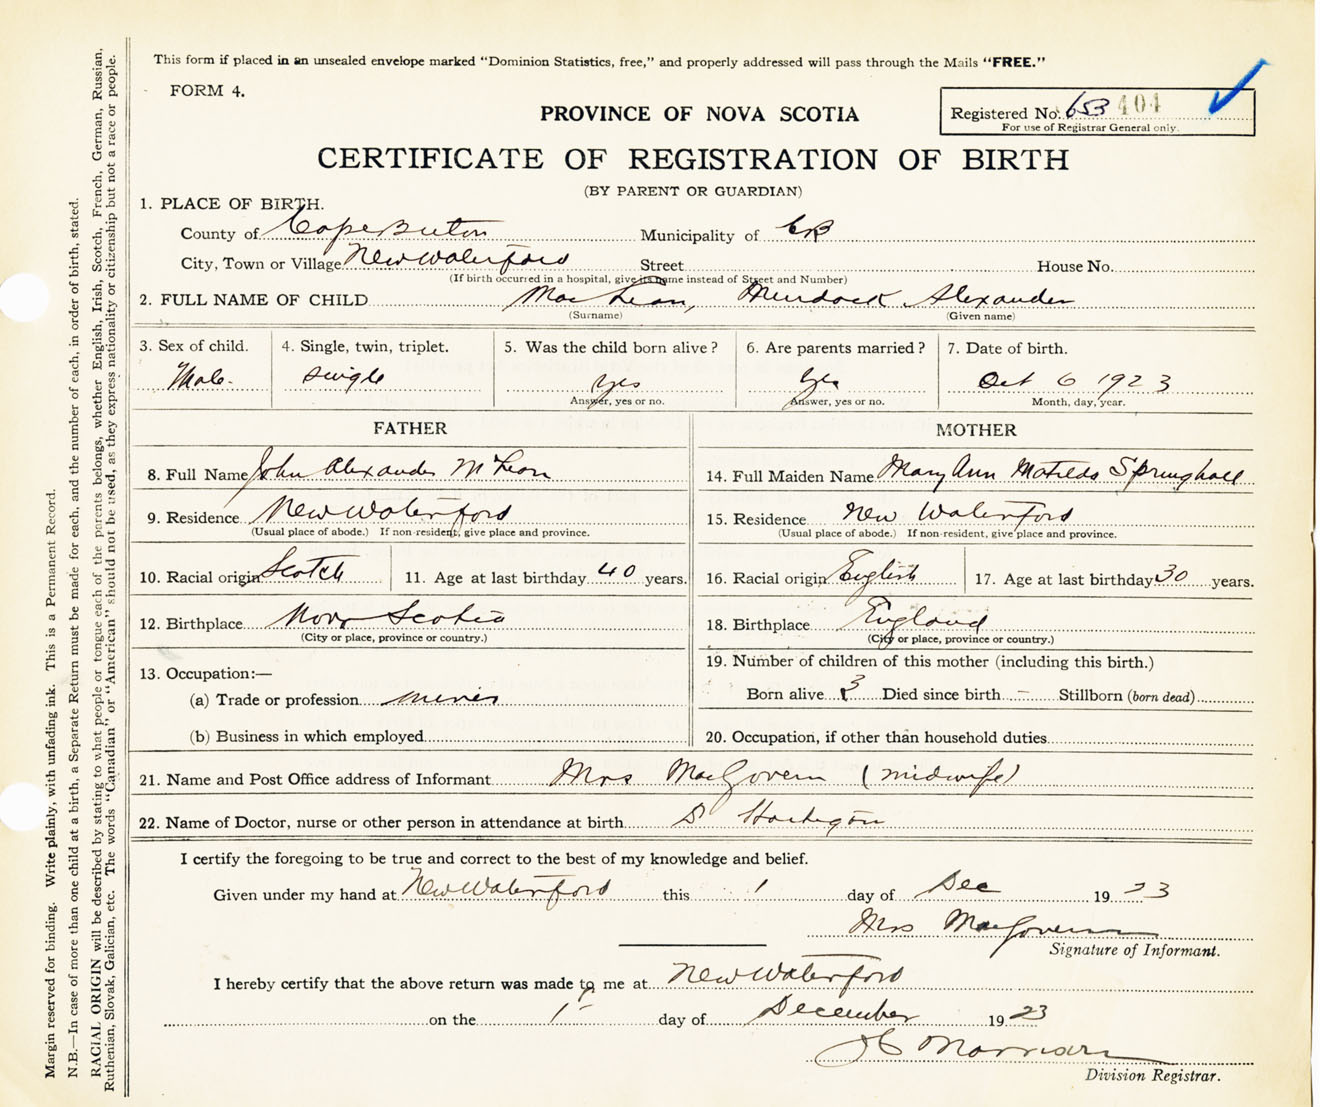 This form if placed in an unsealed envelope marked "Dominion Statistics, free," and properly addressed will pass through the Mails "FREE."
FORM 4.
PROVINCE OF NOVA SCOTIA
Registered No. 653 404
For use of Registrar General only.
CERTIFICATE OF REGISTRATION OF BIRTH
(BY PARENT OR GUARDIAN)
1. PLACE OF BIRTH.
County of Cape Breton Municipality of CB
City, Town or Village New Waterford Street House No.
(If birth occurred in a hospital, give its name instead of Street and Number)
2. FULL NAME OF CHILD MacLean, Murdock Alexander
(Surname) (Given name)
3. Sex of child. 4. Single, twin, triplet. 5. Was the child born alive? 6. Are parents married? 7. Date of birth.
Male. single yes yes Oct 6 1923
Answer, yes or no. Answer, yes or no. Month, day, year.
FATHER MOTHER
8. Full Name John Alexander McLean 14. Full Maiden Name Mary Ann Matilda Springhall
9. Residence New Waterford 15. Residence New Waterford
(Usual place of abode.) If non-resident, give place and province. (Usual place of abode.) If non-resident, give place and province.
10. Racial origin Scotch 11. Age at last birthday 40 years. 16. Racial origin English 17. Age at last birthday 30 years.
12. Birthplace Nova Scotia 18. Birthplace England
(City or place, province or country.) (City or place, province or country.)
13. Occupation:— 19. Number of children of this mother (including this birth.)
(a) Trade or profession miner Born alive 3 Died since birth – Stillborn (born dead)
(b) Business in which employed 20. Occupation, if other than household duties
21. Name and Post Office address of Informant Mrs MacGovern (midwife)
22. Name of Doctor, nurse or other person in attendance at birth
I certify the foregoing to be true and correct to the best of my knowledge and belief.
Given under my hand at New Waterford this 1 day of Dec 1923
Mrs MacGovern
Signature of Informant.
I hereby certify that the above return was made to me at New Waterford
on the 1 day of December 1923
Morrison
Division Registrar.
Margin reserved for binding. Write plainly, with unfading ink. This is a Permanent Record.
N.B.—In case of more than one child at a birth, a Separate Return must be made for each, and the number of each, in order of birth, stated.
RACIAL ORIGIN will be described by stating to what people or tongue each of the parents belongs, whether English, Irish, Scotch, French, German, Russian,
Ruthenian, Slovak, Galician, etc. The words "Canadian" or "American" should not be used, as they express nationality or citizenship but not a race or people.